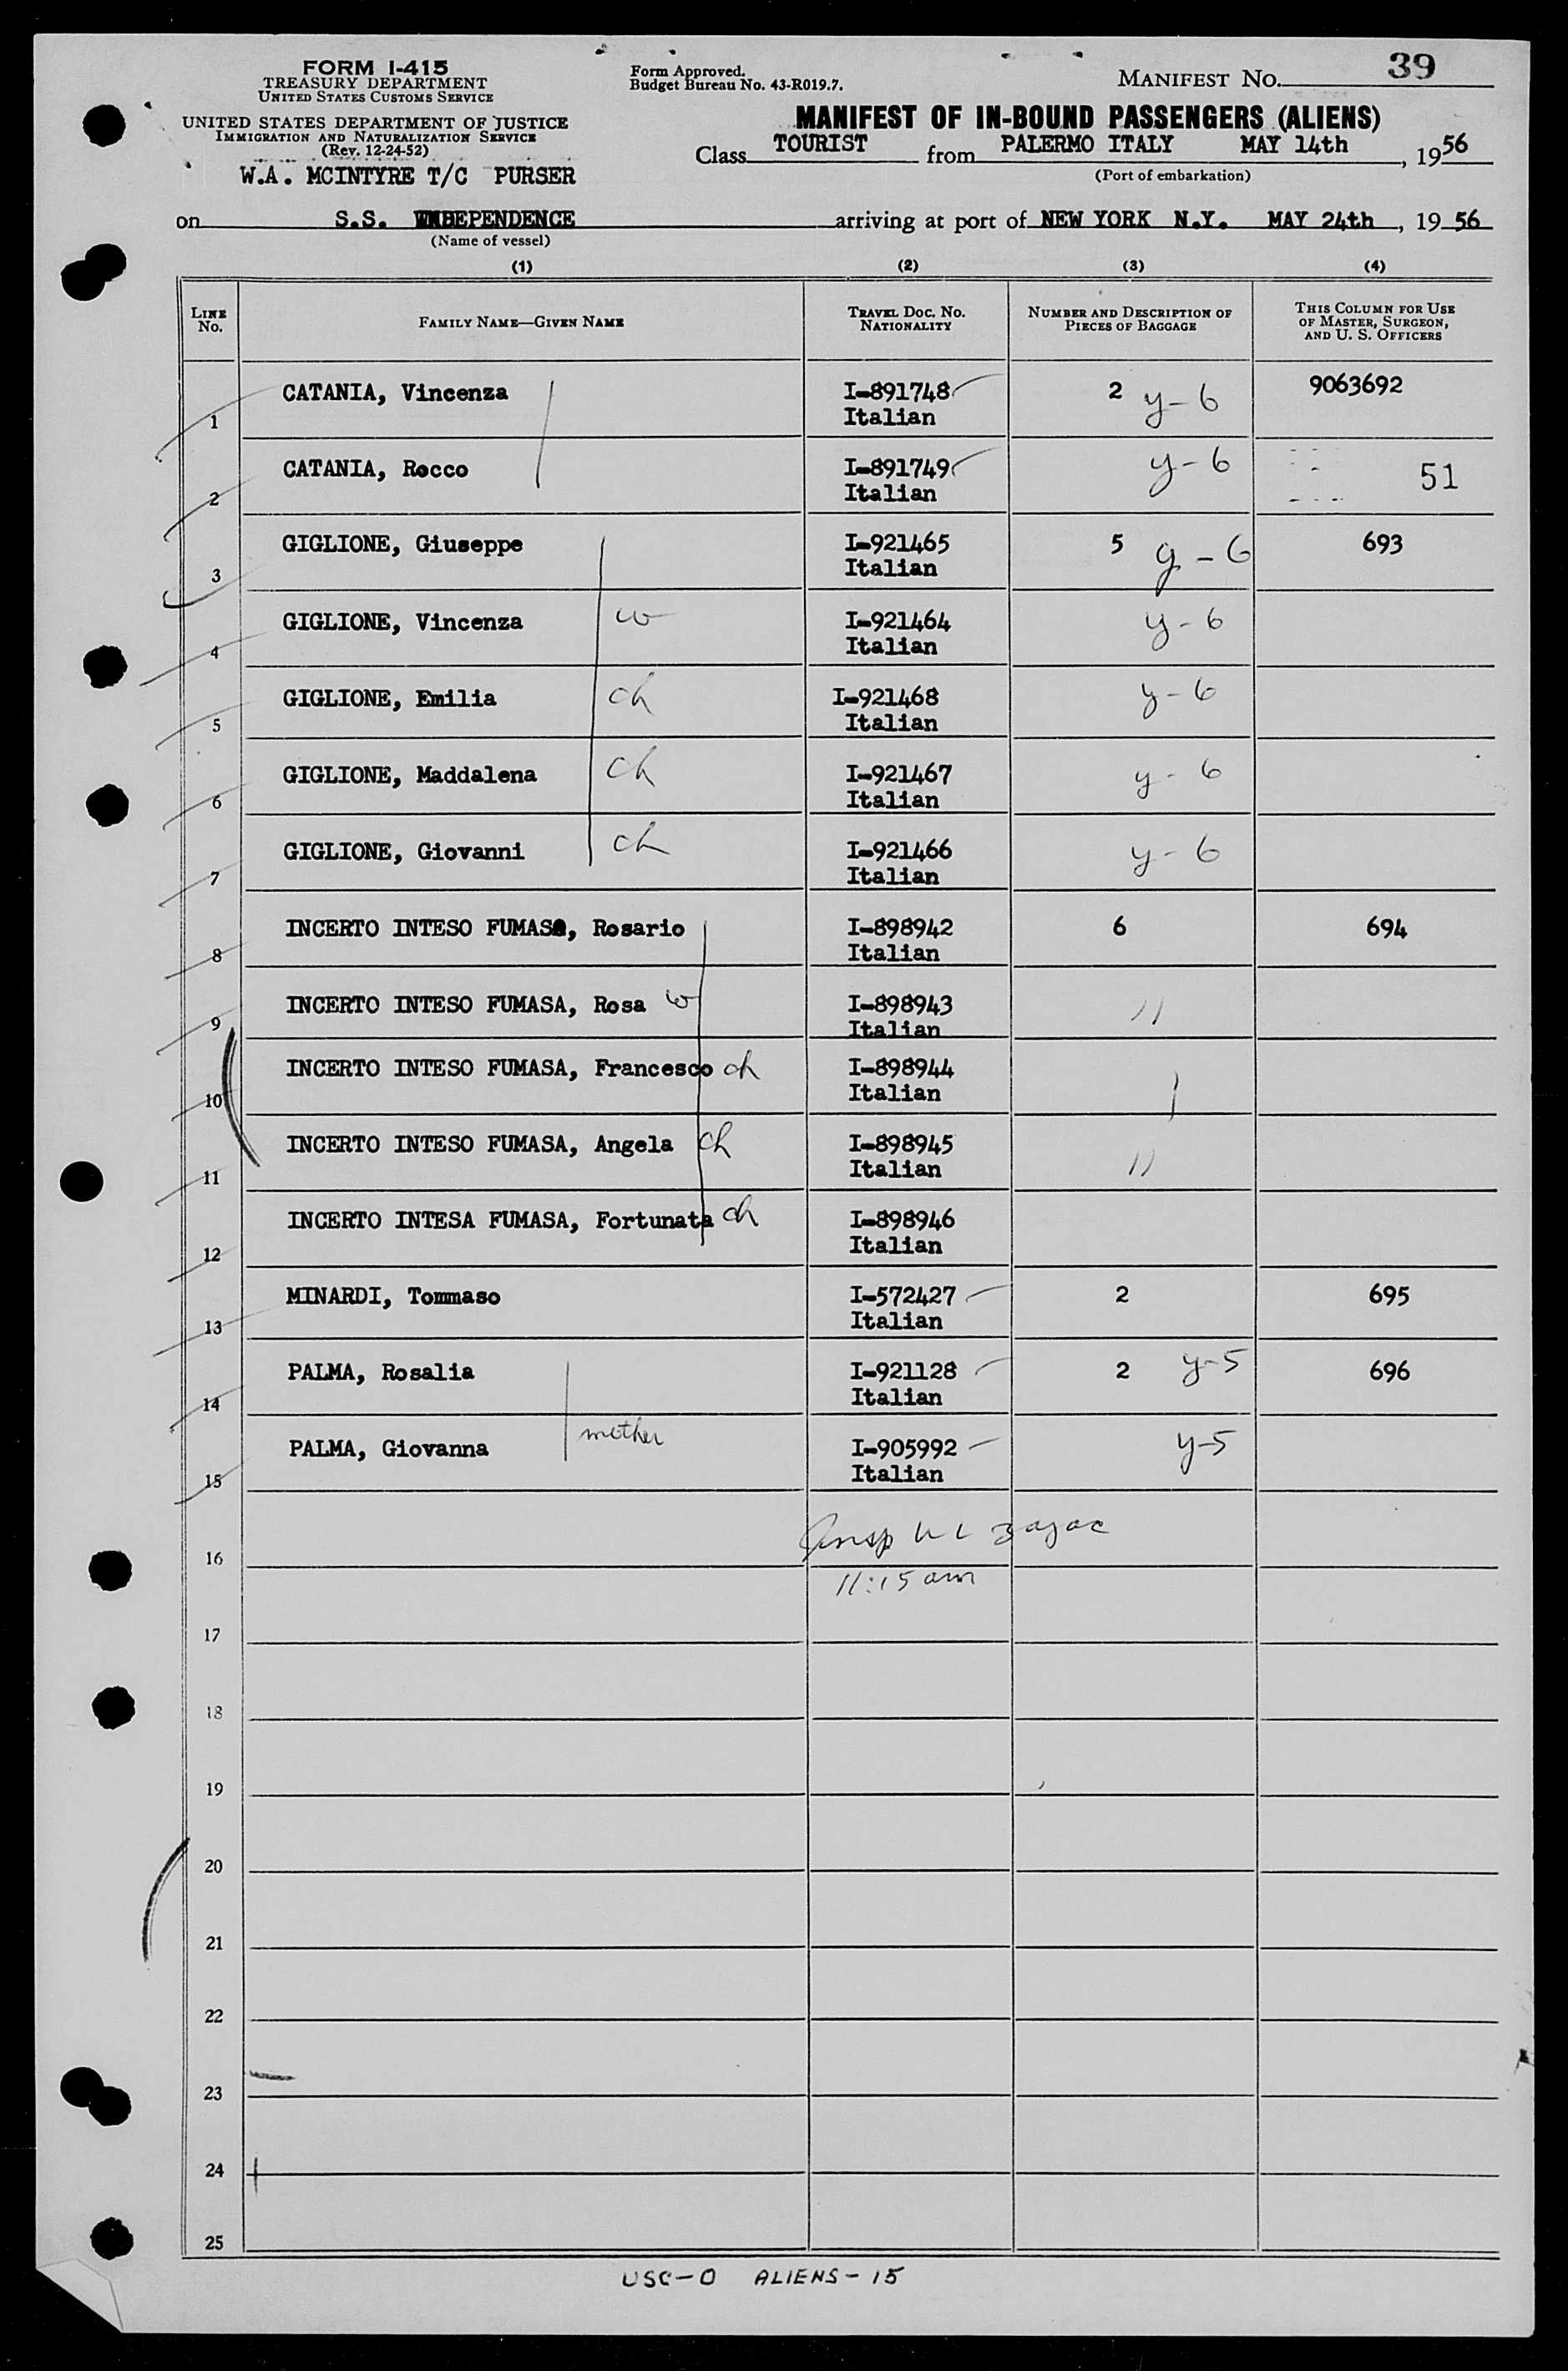 FORM I-415
TREASURY DEPARTMENT
UNITED STATES CUSTOMS SERVICE
UNITED STATES DEPARTMENT OF JUSTICE
IMMIGRATION AND NATURALIZATION SERVICE
(Rev. 12-24-52)
W.A. MCINTYRE T/C PURSER
Form Approved.
Budget Bureau No. 43-R019.7.
MANIFEST NO. 39
MANIFEST OF IN-BOUND PASSENGERS (ALIENS)
Class TOURIST from PALERMO ITALY MAY 14th, 1956
(Port of embarkation)
on S.S. INDEPENDENCE arriving at port of NEW YORK N.Y. MAY 24th, 19 56
(Name of vessel)
(1) (2) (3) (4)
LINE No. FAMILY NAME—GIVEN NAME TRAVEL DOC. NO. NATIONALITY NUMBER AND DESCRIPTION OF PIECES OF BAGGAGE THIS COLUMN FOR USE OF MASTER, SURGEON, AND U. S. OFFICERS
1 CATANIA, Vincenza I-891748 Italian 2 y-6 9063692
2 CATANIA, Rocco I-891749 Italian y-6 51
3 GIGLIONE, Giuseppe I-921465 Italian 5 y-6 693
4 GIGLIONE, Vincenza w I-921464 Italian y-6
5 GIGLIONE, Emilia ch I-921468 Italian y-6
6 GIGLIONE, Maddalena ch I-921467 Italian y-6
7 GIGLIONE, Giovanni ch I-921466 Italian y-6
8 INCERTO INTESO FUMASA, Rosario I-898942 Italian 6 694
9 INCERTO INTESO FUMASA, Rosa w I-898943 Italian 11
10 INCERTO INTESO FUMASA, Francesco ch I-898944 Italian
11 INCERTO INTESO FUMASA, Angela ch I-898945 Italian 11
12 INCERTO INTESA FUMASA, Fortunata ch I-898946 Italian
13 MINARDI, Tommaso I-572427 Italian 2 695
14 PALMA, Rosalia I-921128 Italian 2 y-5 696
15 PALMA, Giovanna mother I-905992 Italian y-5
16 Insp W L Zajac
11:15 am
17
18
19
20
21
22
23
24
25
USC-0 ALIENS-15